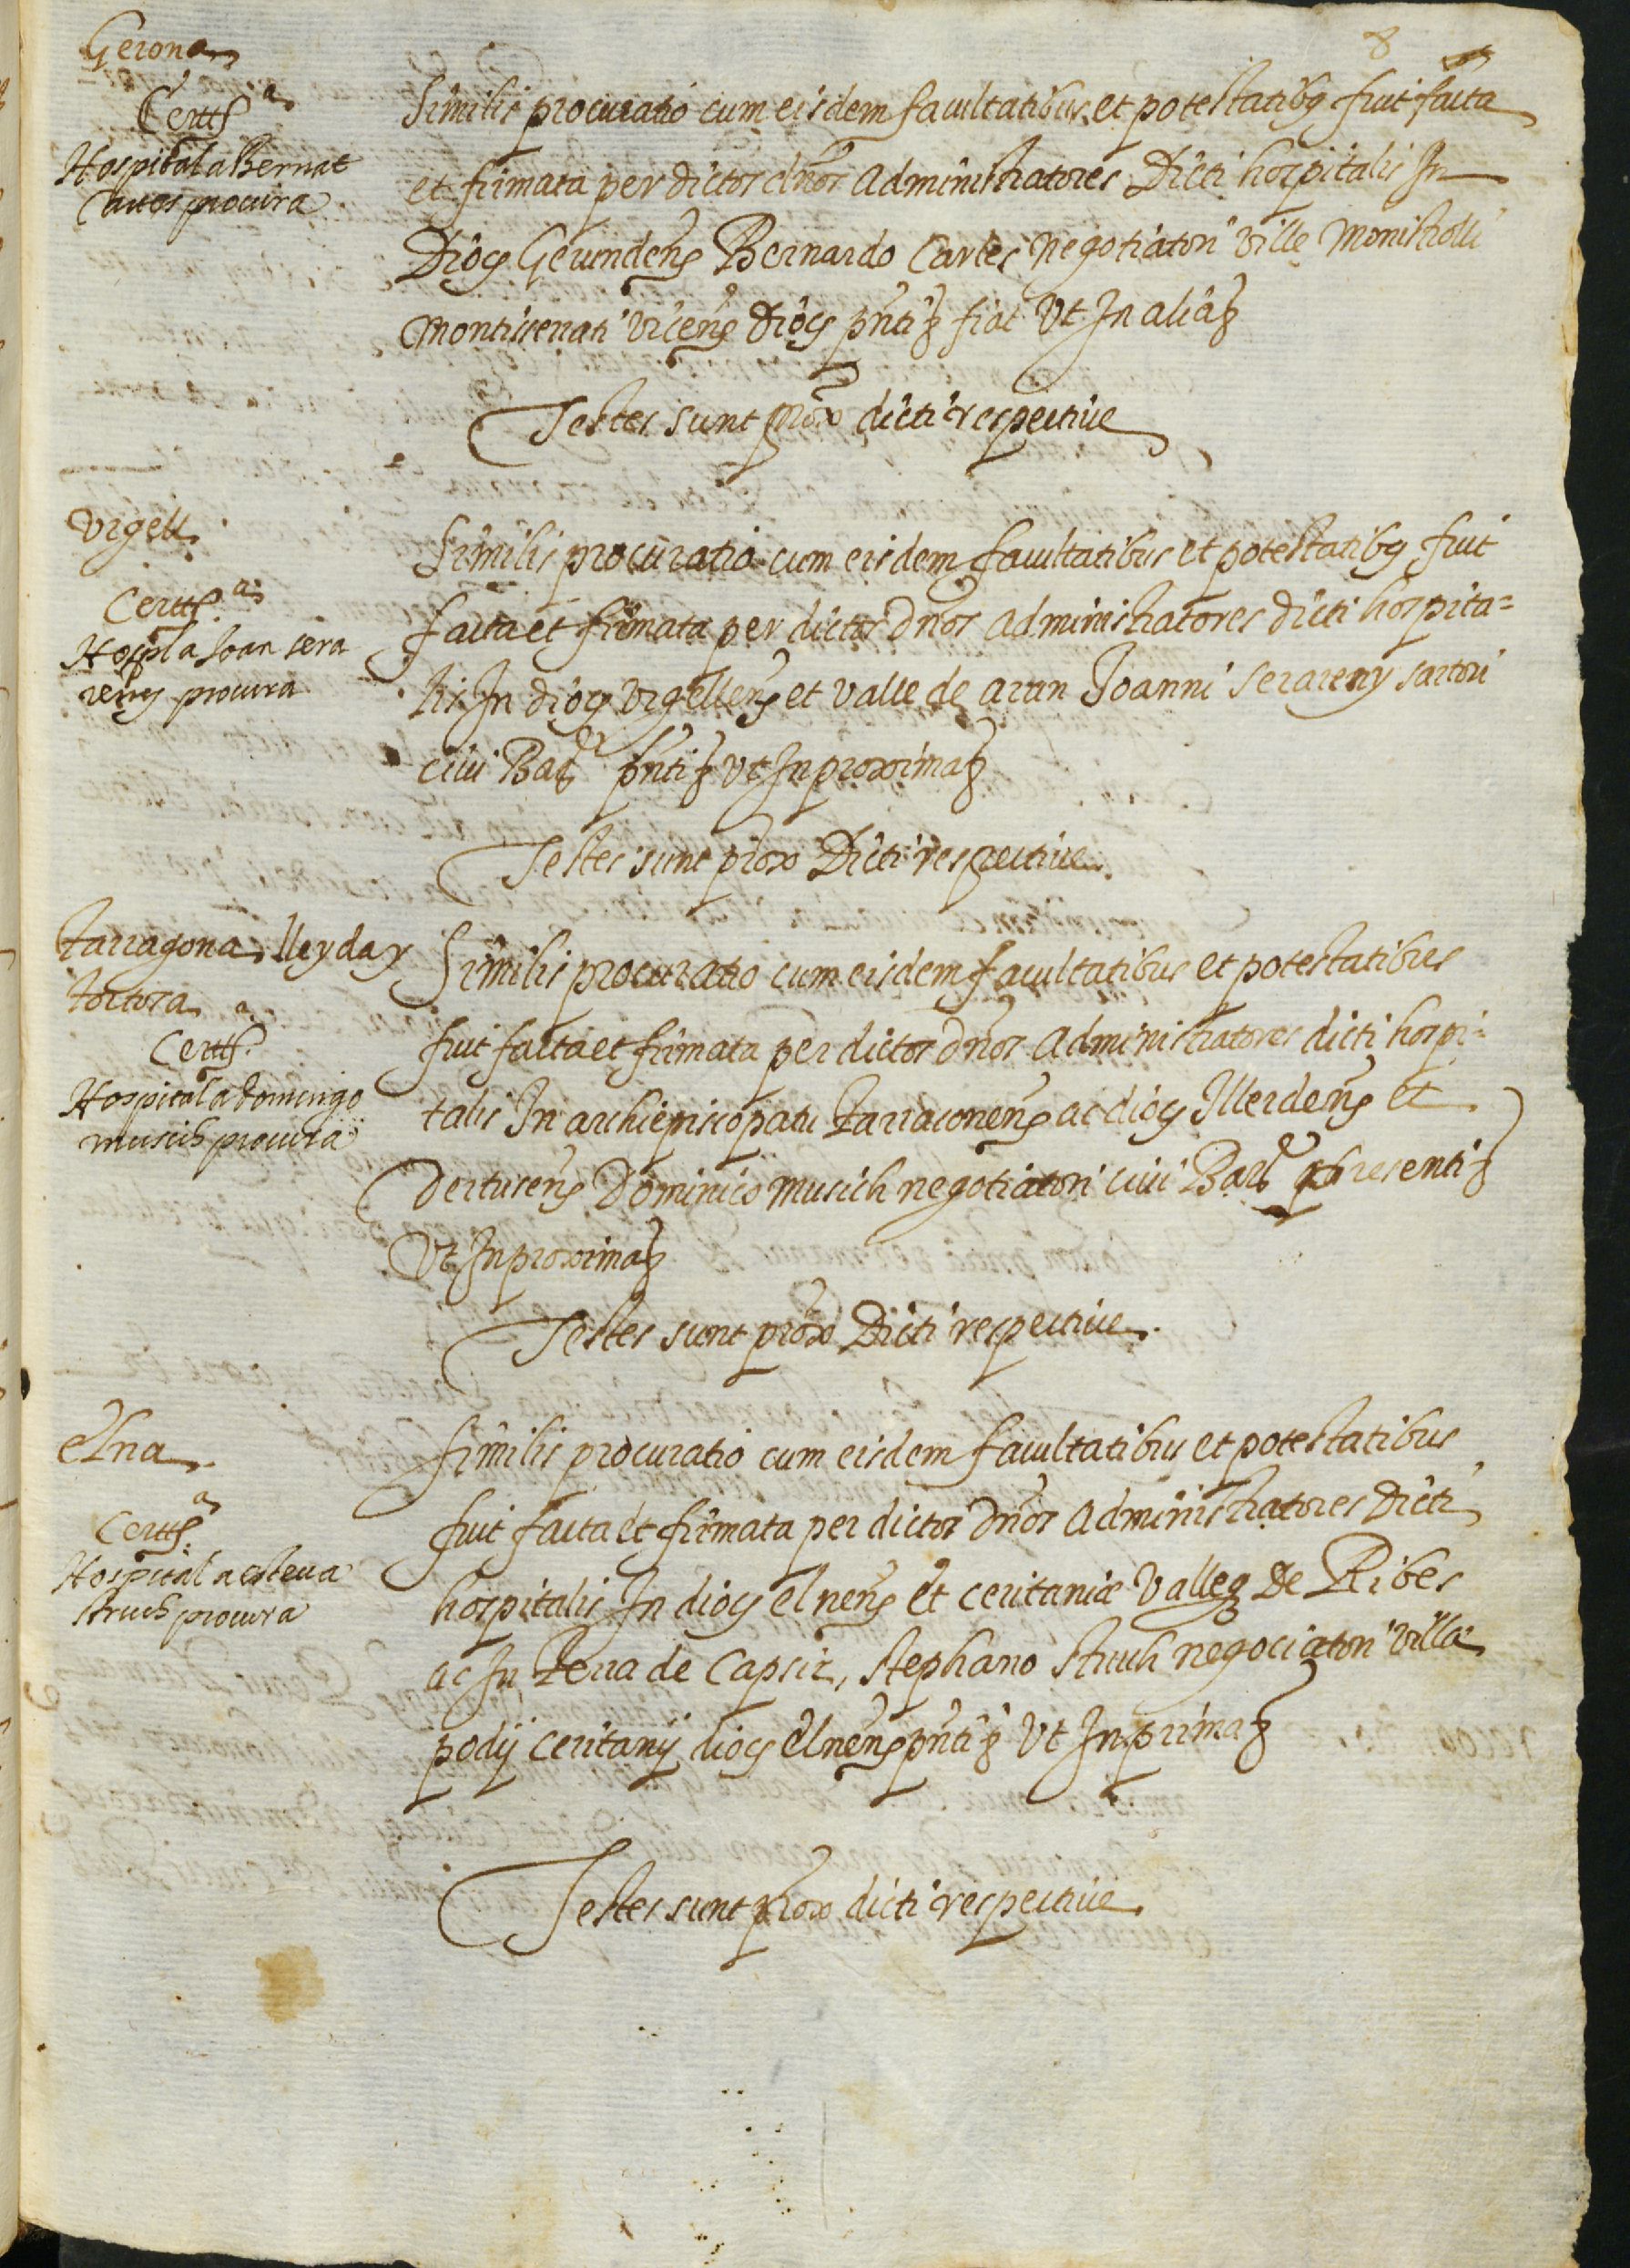 8
Gerona
Certtª
Hospital a Bernat
Carles procura
Similis procuratio cum eisdem facultatibus et potestatibq fuit facta
et firmata per dictos dños Administratores Dicti hospitalis In
Diôcs Gerundenš Bernardo Carles negotiatori ville Monistrolli
Montisserrati vicenš Diôcs pñti fiat Vt In aliã
Testes sunt prox dicti respectiue
Vrgell
Certtª
Hospl a Joan sera
reñs procura
Similis procuratio cum eisdem facultatibus et potestatibq fuit
facta et firmata per dictos Dños Administratores dicti hospita=
lis In diôcs Vrgellenš et valle de aran Joanni Serareny sartori
ciui Barᵉ pñti Vt In proxima
Testes sunt prox Dicti respectiue
Tarragona, lleyda y
tortosa
Certtª
Hospital a domingo
musich procura
Similis procuratio cum eisdem facultatibus et potestatibus
fuit facta et firmata per dictos Dños Administratores dicti hospi=
talis In archiepiscopatu Tarraconenš ac diôcs Illerdenš et
Dertusenš Dominico musich negotiatori ciui Barᵉ presenti
Vt In proxima
Testes sunt prox Dicti respectiue
elna
Certtª
Hospital a esteua
struch procura
Similis procuratio cum eisdem facultatibus et potestatibus
fuit facta et firmata per dictos Dños Administratores Dicti
hospitalis In diôcs elnenš et ceritaniæ Valleq De Ribes
ac In Terra de Capsir, Stephano Struch negociatori villa
podij ceritanij diôcs elnenš pñti Vt In prima
Testes sunt prox dicti respectiue